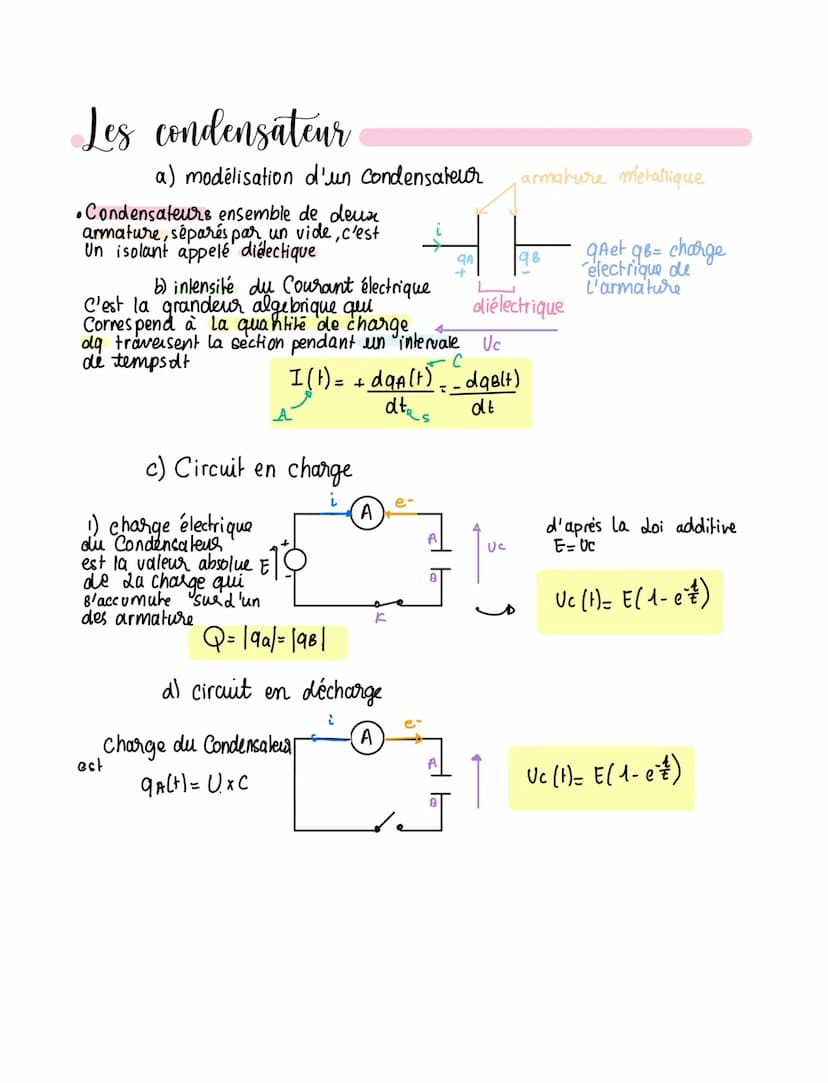 Les condensateur
a) modélisation d'un condensateur
armature métallique
• Condensateurs ensemble de deux
armature, séparés par un vide, c'est
Un isolant appelé diélectique
i
qA
+
qB
-
qA et qB = charge
électrique de
L'armature
diélectrique
Uc
b) intensité du Courant électrique
C'est la grandeur algebrique qui
Correspend à la quantité de charge
dq traversent la section pendant un intervale
de temps dt
I(t) = + dqA(t)/dt = - dqB(t)/dt
A
C
s
c) Circuit en charge
1) charge électrique
du Condensateurs
est la valeur absolue
de la charge qui
s'accumule sur d'un
des armature
Q = |qa| = |qB|
i
A
e-
E
+
-
A
B
Uc
K
d'après la loi additive
E = Uc
Uc(t) = E(1 - e^-t/τ)
d) circuit en décharge
Charge du Condensateur
est
qA(t) = U x C
i
A
e-
A
B
Uc(t) = E(1 - e^-t/τ)